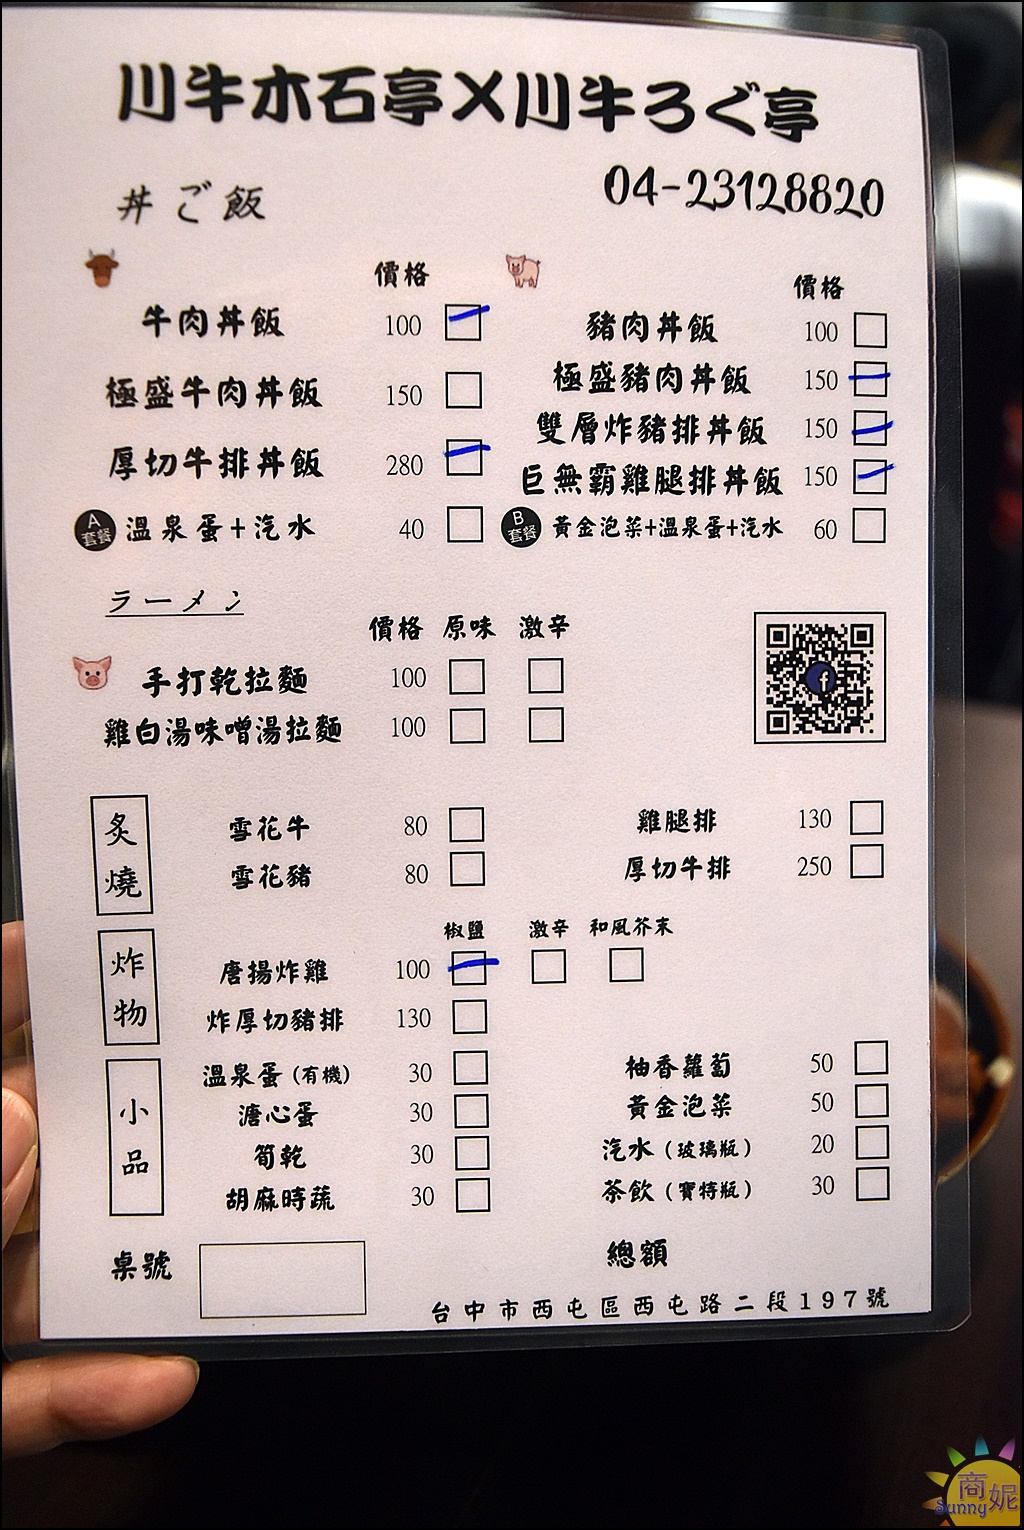 川牛木石亭X川牛ろぐ亭
丼ご飯
04-23128820
價格
牛肉丼飯 100
極盛牛肉丼飯 150
厚切牛排丼飯 280
A套餐 溫泉蛋+汽水 40
價格
豬肉丼飯 100
極盛豬肉丼飯 150
雙層炸豬排丼飯 150
巨無霸雞腿排丼飯 150
B套餐 黃金泡菜+溫泉蛋+汽水 60
ラーメン
價格 原味 激辛
手打乾拉麵 100
雞白湯味噌湯拉麵 100
炙燒
雪花牛 80
雪花豬 80
雞腿排 130
厚切牛排 250
炸物
椒鹽 激辛 和風芥末
唐揚炸雞 100
炸厚切豬排 130
小品
溫泉蛋(有機) 30
溏心蛋 30
筍乾 30
胡麻時蔬 30
柚香蘿蔔 50
黃金泡菜 50
汽水(玻璃瓶) 20
茶飲(寶特瓶) 30
桌號
總額
台中市西屯區西屯路二段197號
商妮
Sunny